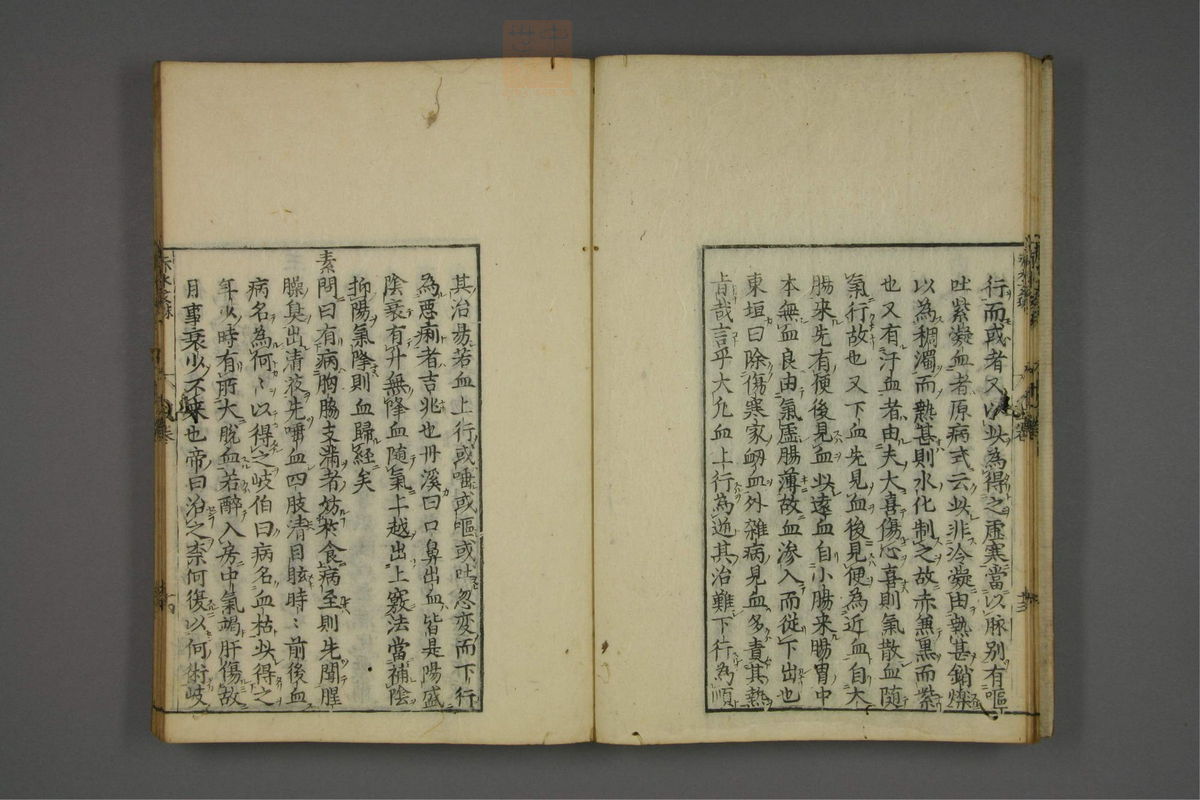 行而或者又以此為得之虛寒當以脉別有嘔
吐紫凝血者原病式云此非冷凝由熱甚銷爍
以為稠濁而熱甚則水化制之故赤兼黑而紫
也又有汗血者由夫大喜傷心喜則氣散血随
氣行故也又下血先見血後見便為近血自大
腸來先有便後見血此遠血自小腸来腸胃中
本無血良由氣虛腸薄故血滲入而從下出也
東垣曰除傷寒家衂血外雜病見血多責其熱
肯哉言乎大凢血上行為逆其治難下行為順
其治昜若血上行或唾或嘔或吐忽変而下行
為悪痢者吉兆也丹溪曰口鼻出血皆是陽盛
陰衰有升無降血随氣上越出上竅法當補陰
抑陽氣降則血歸経矣
素問曰有病胸脇支滿者妨於食病至則先聞腥
臊臭出清液先唾血四肢清目眩時〻前後血
病名為何〻以得之岐伯曰病名血枯此得之
年少時有所大脫血若醉入房中氣竭肝傷故
月事衰少不來也帝曰治之柰何復以何術岐